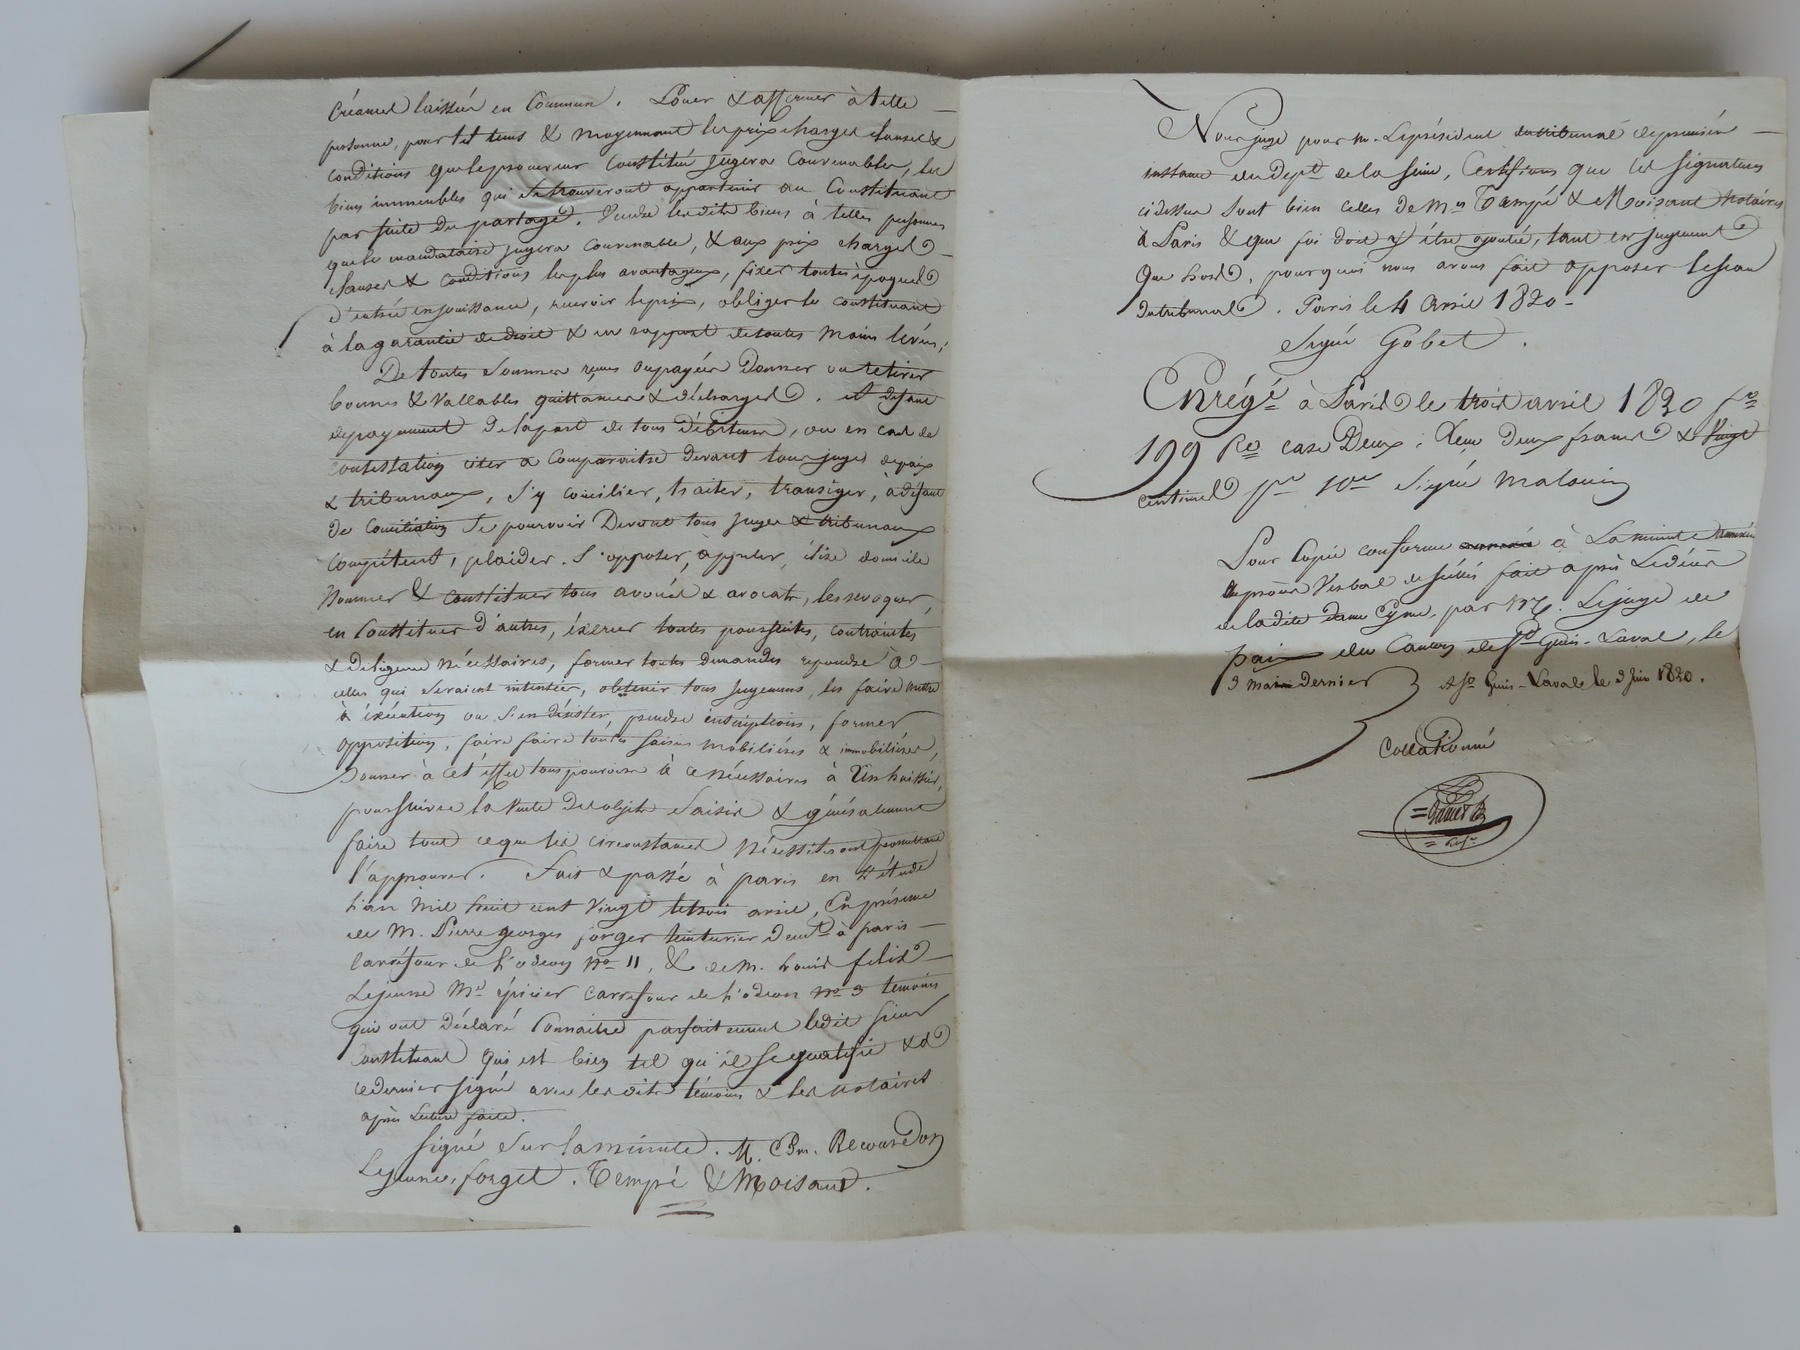 Créances laissées en Commun. Louer & affermer à telle
personne, pour tel tems & moyennant les prix charges clauses &
conditions que le procureur Constitué jugera Convenables, les
biens immeubles qui se trouveront appartenir au Constituant
par suite du partage. Vendre lesdits biens à telles personnes
que le mandataire jugera Convenable, & aux prix charges
clauses & conditions les plus avantageux, fixer toutes époques
d'entrée en jouissance, recevoir le prix, obliger le constituant
à la garantie de droit & au rapport de toutes mains levées;
De toutes Sommes reçues ou payées Donner ou retirer
bonnes & Vallables quittances & décharges. et défaut
de payement de la part de tous débiteurs, ou en cas de
contestation citer & Comparaitre devant tous juges de paix
& tribunaux, s'y concilier, traiter, transiger, à défaut
de Conciliation Se pourvoir Devant tous juges & tribunaux
compétents, plaider. S'opposer, appeler, élire domicile
Nommer & constituer tous avoués & avocats, les revoquer,
en Constituer d'autres, éxercer toutes poursuites, contraintes
& diligences nécessaires, former toutes demandes repondre à
celles qui Seraient intentées, obtenir tous jugemens, les faire mettre
à éxécution ou S'en désister, prendre inscriptions, former
opposition, faire faire toutes saisies mobiliéres & immobiliéres,
Donner à cet effet tous pouvoirs à ce nécessaires à Un huissier,
poursuivre la Vente des objets Saisis & généralement
faire tout ce que les circonstances Nécessiteront promettant
l'approuver. Fait & passé à paris en l'étude
l'an Mil huit cent Vingt le trois avril, En présence
de M. Pierre georges forget teinturier demt à paris
Carrefour de l'odeon No 11, & de M. Louis felix
Lejeune Md épicier carrefour de l'odeon no 3 temoins
qui ont Déclaré Connaitre parfaitement ledit Sieur
Constituant qui est bien tel qu'il se qualifie & a
ce dernier signé avec lesdits témoins & les notaires
après Lecture faite.
Signé Sur la minute. M. Recourdon
Lejeune, forget. Tempé & Moisant.
Nous juge pour M. Le président du tribunal de première
instance du Dept de la Seine, Certifions que les signatures
ci dessus Sont bien celles de Mes Tempé & Moisant Notaires
à Paris & que foi doit y être ajoutée, tant en jugement
que hors, pourquoi nous avons fait apposer le sceau
du tribunal. Paris le 4 avril 1820
Signé Gobet.
Enrégé à Paris le trois avril 1820 fo
199 Ro case Deux: Reçu deux francs & Vingt
centimes pr 10e Signé Malouin
Pour Copie conforme à La minute annexée
au procès Verbal de scellés fait après Le décès
de ladite Dame par M. Le juge de
paix du Canton de St Genis-Laval, le
3 mai Dernier A St Genis-Laval le 3 Juin 1820.
Collationné